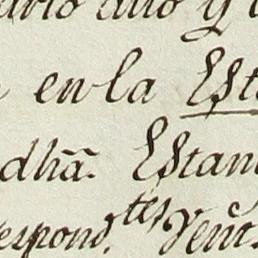 año y
en la Est
dhā. Estan
espond.tes Venr.